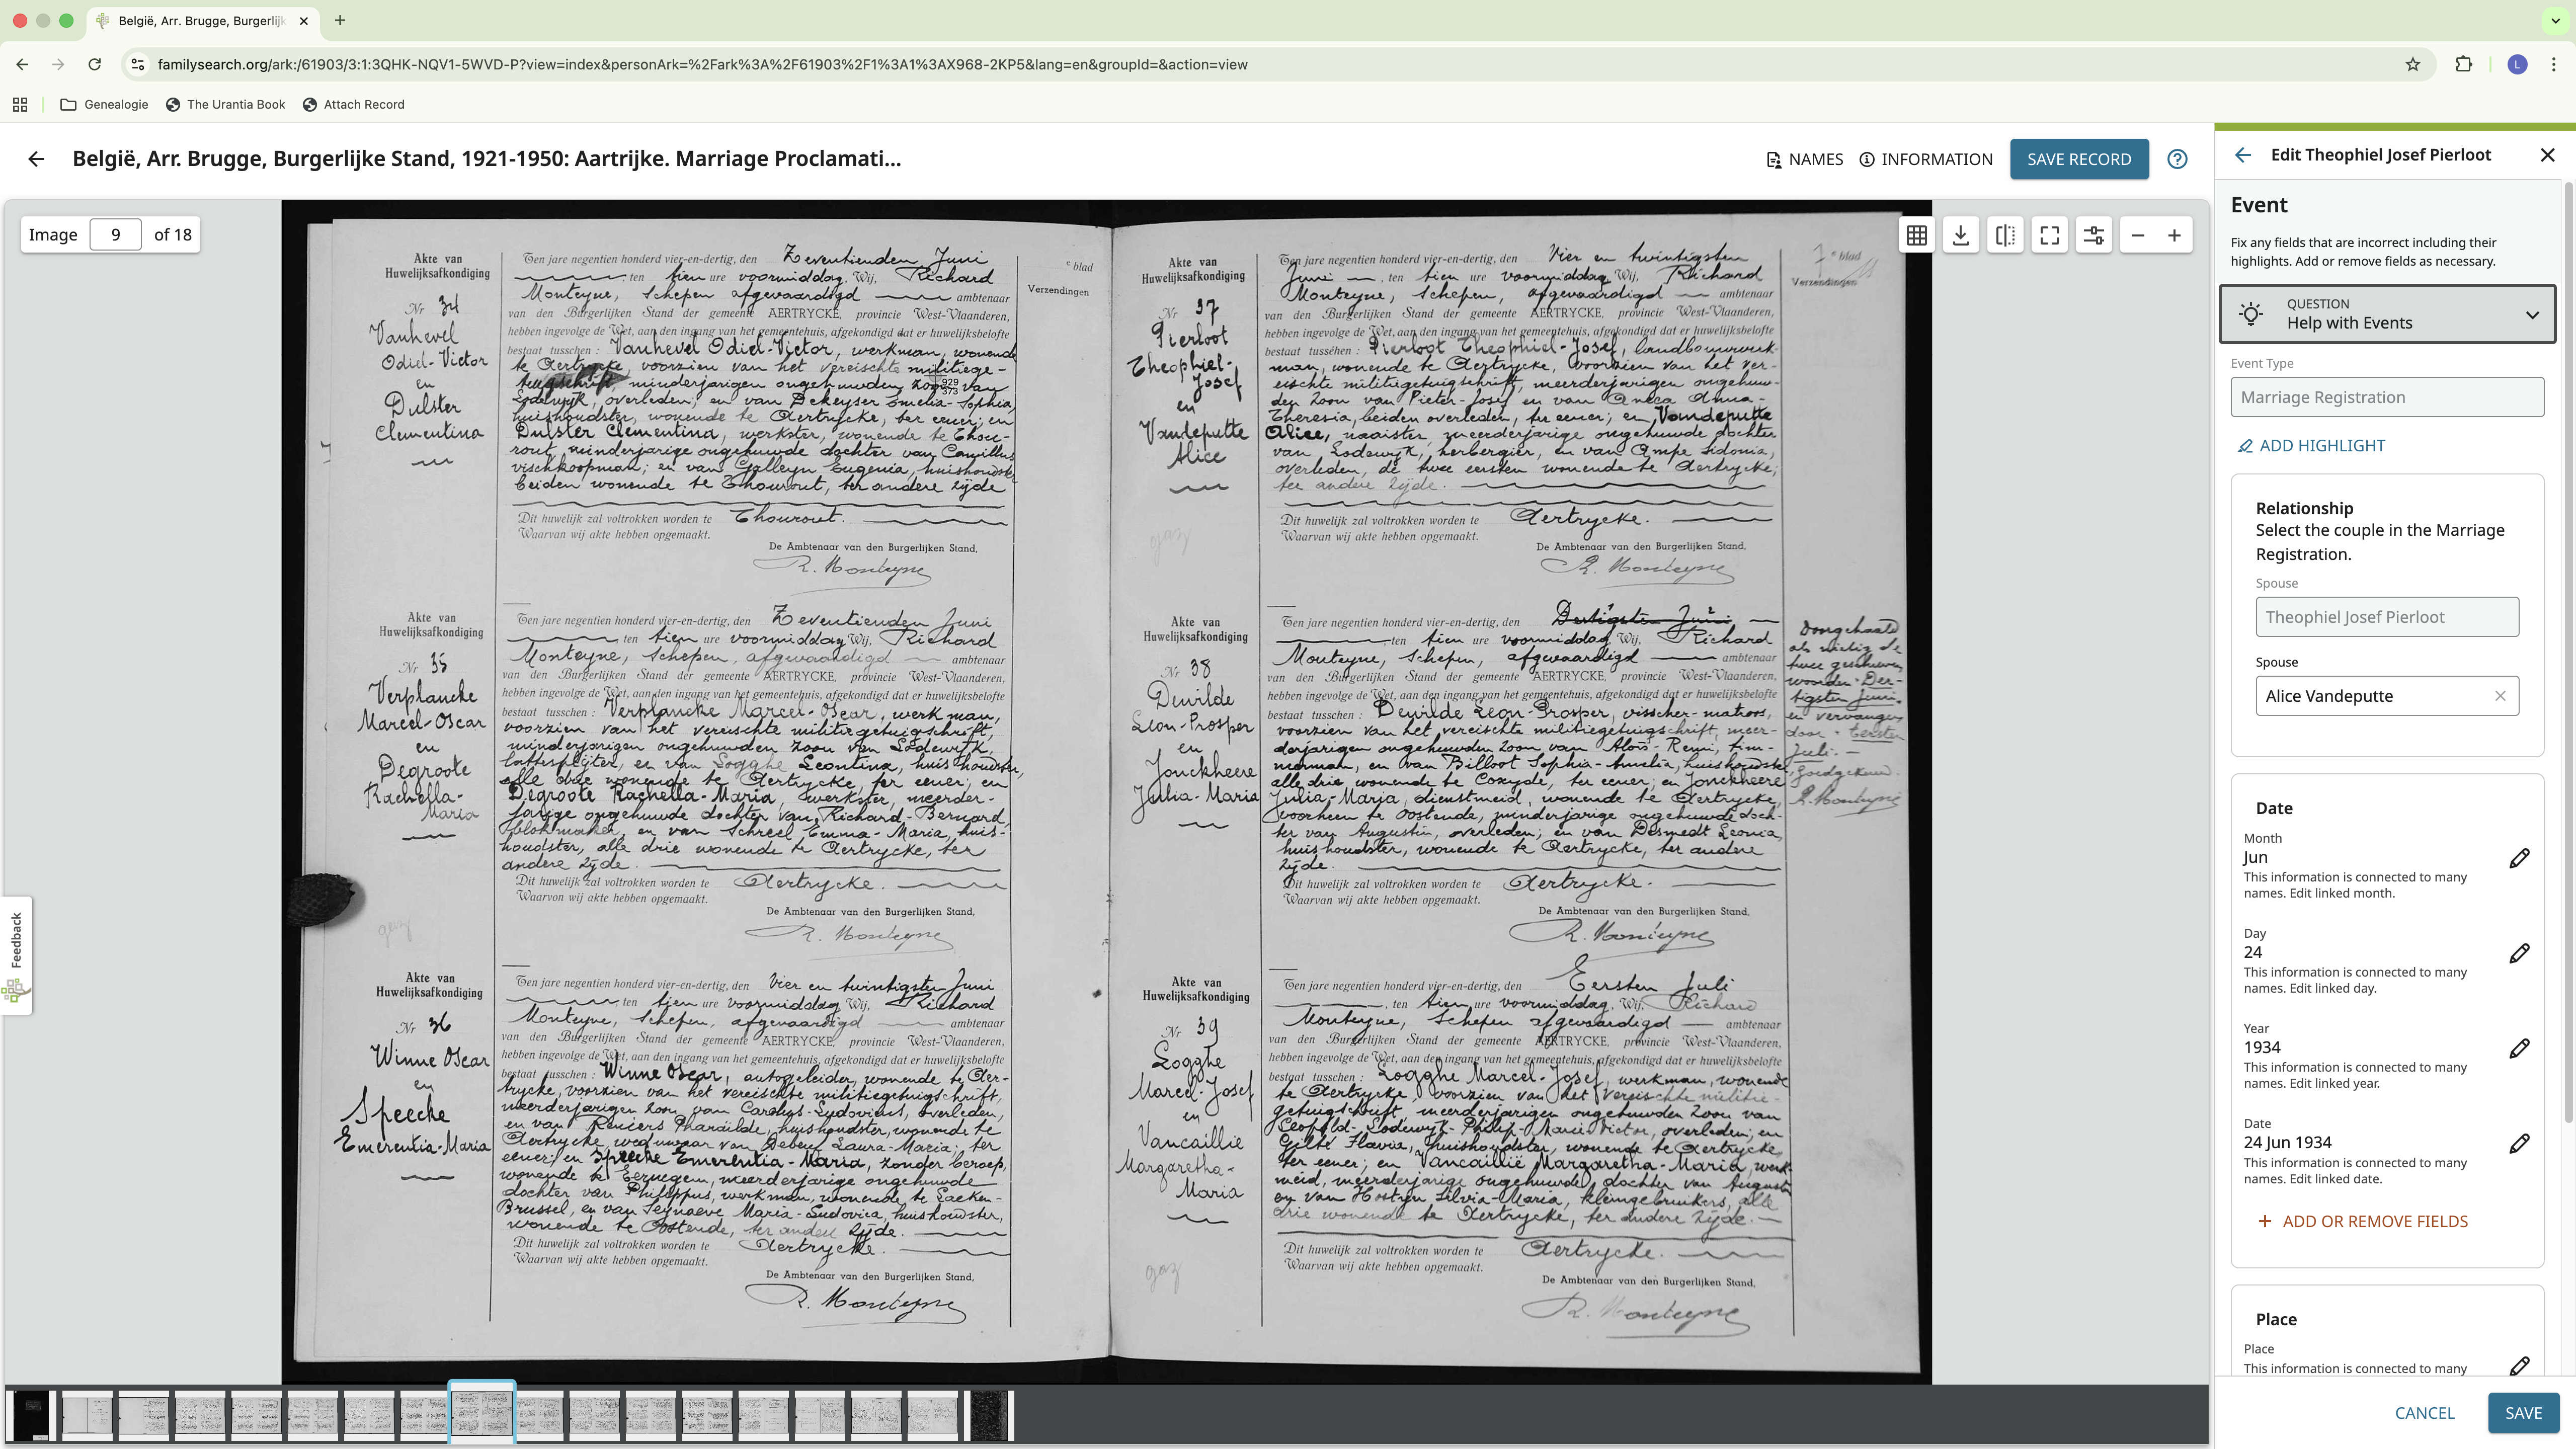 België, Arr. Brugge, Burgerlijk
familysearch.org/ark:/61903/3:1:3QHK-NQV1-5WVD-P?view=index&personArk=%2Fark%3A%2F61903%2F1%3A1%3AX968-2KP5&lang=en&groupId=&action=view
L
Genealogie
The Urantia Book
Attach Record
België, Arr. Brugge, Burgerlijke Stand, 1921-1950: Aartrijke. Marriage Proclamati...
NAMES
INFORMATION
SAVE RECORD
Image 9 of 18
Akte van
Huwelijksafkondiging
Nr 34
Vanhevel
Odiel-Victor
en
Dulster
Clementina
Ten jare negentien honderd vier-en-dertig, den Zeventienden Juni
ten tien ure voormiddag, Wij, Richard
Monteyne, Schepen afgevaardigd ambtenaar
van den Burgerlijken Stand der gemeente AERTRYCKE, provincie West-Vlaanderen,
hebben ingevolge de Wet, aan den ingang van het gemeentehuis, afgekondigd dat er huwelijksbelofte
bestaat tusschen : Vanhevel Odiel-Victor, werkman, wonende
te Aertrycke, voorzien van het vereischte militiege-
tuigschrift, minderjarigen ongehuwden zoon van
Lodewyk, overleden; en van Dekeyser Emelia-Sophia,
huishoudster, wonende te Aertrycke, ter eener; en
Dulster Clementina, werkster, wonende te Thou-
rout, minderjarige ongehuwde dochter van Camillus
vischkoopman; en van Galleyn Eugenia, huishoudster
beiden wonende te Thourout, ter andere zijde
Dit huwelijk zal voltrokken worden te Thourout.
Waarvan wij akte hebben opgemaakt.
De Ambtenaar van den Burgerlijken Stand,
R. Monteyne
e blad
Verzendingen
929
373
Akte van
Huwelijksafkondiging
Nr 35
Verplancke
Marcel-Oscar
en
Degroote
Rachella-
Maria
Ten jare negentien honderd vier-en-dertig, den Zeventienden Juni
ten tien ure voormiddag, Wij, Richard
Monteyne, Schepen, afgevaardigd ambtenaar
van den Burgerlijken Stand der gemeente AERTRYCKE, provincie West-Vlaanderen,
hebben ingevolge de Wet, aan den ingang van het gemeentehuis, afgekondigd dat er huwelijksbelofte
bestaat tusschen : Verplancke Marcel-Oscar, werkman,
voorzien van het vereischte militiegetuigschrift,
minderjarigen ongehuwden zoon van Lodewyk,
lattesplijter, en van Logghe Leontina, huishoudster,
alle drie wonende te Aertrycke, ter eener; en
Degroote Rachella-Maria, werkster, meerder-
jarige ongehuwde dochter van Richard-Bernard,
blokmaker, en van Schreel Emma-Maria, huis-
houdster, alle drie wonende te Aertrycke, ter
andere zijde.
Dit huwelijk zal voltrokken worden te Aertrycke.
Waarvan wij akte hebben opgemaakt.
De Ambtenaar van den Burgerlijken Stand,
R. Monteyne
Akte van
Huwelijksafkondiging
Nr 36
Winne Oscar
en
Speecke
Emerentia-Maria
Ten jare negentien honderd vier-en-dertig, den Vier en twintigsten Juni
ten tien ure voormiddag Wij, Richard
Monteyne, Schepen, afgevaardigd ambtenaar
van den Burgerlijken Stand der gemeente AERTRYCKE, provincie West-Vlaanderen,
hebben ingevolge de Wet, aan den ingang van het gemeentehuis, afgekondigd dat er huwelijksbelofte
bestaat tusschen : Winne Oscar, autogeleider, wonende te Aer-
trycke, voorzien van het vereischte militiegetuigschrift,
meerderjarigen zoon van Carolus-Ludovicus, overleden,
en van Reniers Pharaïlde, huishoudster, wonende te
Aertrycke, weduwaar van Debeuf Laura-Maria, ter
eener; en Speecke Emerentia-Maria, zonder beroep,
wonende te Eernegem, meerderjarige ongehuwde
dochter van Philippus, werkman, wonende te Laeken-
Brussel, en van Seynaeve Maria-Ludovica, huishoudster,
wonende te Oostende, ter andere zijde.
Dit huwelijk zal voltrokken worden te Aertrycke.
Waarvan wij akte hebben opgemaakt.
De Ambtenaar van den Burgerlijken Stand,
R. Monteyne
Akte van
Huwelijksafkondiging
Nr 37
Pierloot
Theophiel-
Josef
en
Vandeputte
Alice
Ten jare negentien honderd vier-en-dertig, den Vier en twintigsten
Juni, ten tien ure voormiddag, Wij, Richard
Monteyne, Schepen, afgevaardigd ambtenaar
van den Burgerlijken Stand der gemeente AERTRYCKE, provincie West-Vlaanderen,
hebben ingevolge de Wet, aan den ingang van het gemeentehuis, afgekondigd dat er huwelijksbelofte
bestaat tusschen : Pierloot Theophiel-Josef, landbouwwerk-
man, wonende te Aertrycke, voorzien van het ver-
eischte militiegetuigschrift, meerderjarigen ongehuw-
den zoon van Pieter-Josef en van Aneca Anna-
Theresia, beiden overleden, ter eener; en Vandeputte
Alice, naaister, meerderjarige ongehuwde dochter
van Lodewyk, herbergier, en van Ampe Sidonia,
overleden, de twee eersten wonende te Aertrycke;
ter andere zijde.
Dit huwelijk zal voltrokken worden te Aertrycke.
Waarvan wij akte hebben opgemaakt.
De Ambtenaar van den Burgerlijken Stand,
R. Monteyne
7e blad
Verzendingen
Akte van
Huwelijksafkondiging
Nr 38
Dewilde
Leon-Prosper
en
Jonckheere
Julia-Maria
Ten jare negentien honderd vier-en-dertig, den Dertigsten Juni
ten tien ure voormiddag, Wij, Richard
Monteyne, Schepen, afgevaardigd ambtenaar
van den Burgerlijken Stand der gemeente AERTRYCKE, provincie West-Vlaanderen,
hebben ingevolge de Wet, aan den ingang van het gemeentehuis, afgekondigd dat er huwelijksbelofte
bestaat tusschen : Dewilde Leon-Prosper, visscher-matroos,
voorzien van het vereischte militiegetuigschrift, meer-
derjarigen ongehuwden zoon van Aloïs-Remi, tim-
merman, en van Billoot Sophia-Amelia, huishoudster
alle drie wonende te Coxyde, ter eener; en Jonckheere
Julia-Maria, dienstmeid, wonende te Aertrycke,
voorheen te Oostende, minderjarige ongehuwde doch-
ter van Augustin, overleden; en van Desmedt Leonia,
huishoudster, wonende te Aertrycke, ter andere
zijde.
Dit huwelijk zal voltrokken worden te Aertrycke.
Waarvan wij akte hebben opgemaakt.
De Ambtenaar van den Burgerlijken Stand,
R. Monteyne
Doorgehaald
als nietig de
twee geschreven
woorden "Der-
tigsten Juni"
en vervangen
door "Eersten
Juli".
Goedgekeurd.
R. Monteyne
Akte van
Huwelijksafkondiging
Nr 39
Logghe
Marcel-Josef
en
Vancaillie
Margaretha-
Maria
Ten jare negentien honderd vier-en-dertig, den Eersten Juli
ten tien ure voormiddag Wij, Richard
Monteyne, Schepen afgevaardigd ambtenaar
van den Burgerlijken Stand der gemeente AERTRYCKE, provincie West-Vlaanderen,
hebben ingevolge de Wet, aan den ingang van het gemeentehuis, afgekondigd dat er huwelijksbelofte
bestaat tusschen : Logghe Marcel-Josef, werkman, wonende
te Aertrycke, voorzien van het vereischte militie-
getuigschrift, meerderjarigen ongehuwden zoon van
Leopold-Lodewyk-Philip-Marie-Victor, overleden; en
Gilté Flavia, huishoudster, wonende te Aertrycke
ter eener; en Vancaillie Margaretha-Maria, werk-
meid, meerderjarige ongehuwde dochter van August
en van Hostyn Silvia-Maria, kleingebruikers, alle
drie wonende te Aertrycke, ter andere zijde.
Dit huwelijk zal voltrokken worden te Aertrycke.
Waarvan wij akte hebben opgemaakt.
De Ambtenaar van den Burgerlijken Stand,
R. Monteyne
Feedback
Edit Theophiel Josef Pierloot
Event
Fix any fields that are incorrect including their
highlights. Add or remove fields as necessary.
QUESTION
Help with Events
Event Type
Marriage Registration
ADD HIGHLIGHT
Relationship
Select the couple in the Marriage
Registration.
Spouse
Theophiel Josef Pierloot
Spouse
Alice Vandeputte
Date
Month
Jun
This information is connected to many
names. Edit linked month.
Day
24
This information is connected to many
names. Edit linked day.
Year
1934
This information is connected to many
names. Edit linked year.
Date
24 Jun 1934
This information is connected to many
names. Edit linked date.
ADD OR REMOVE FIELDS
Place
Place
This information is connected to many
CANCEL
SAVE